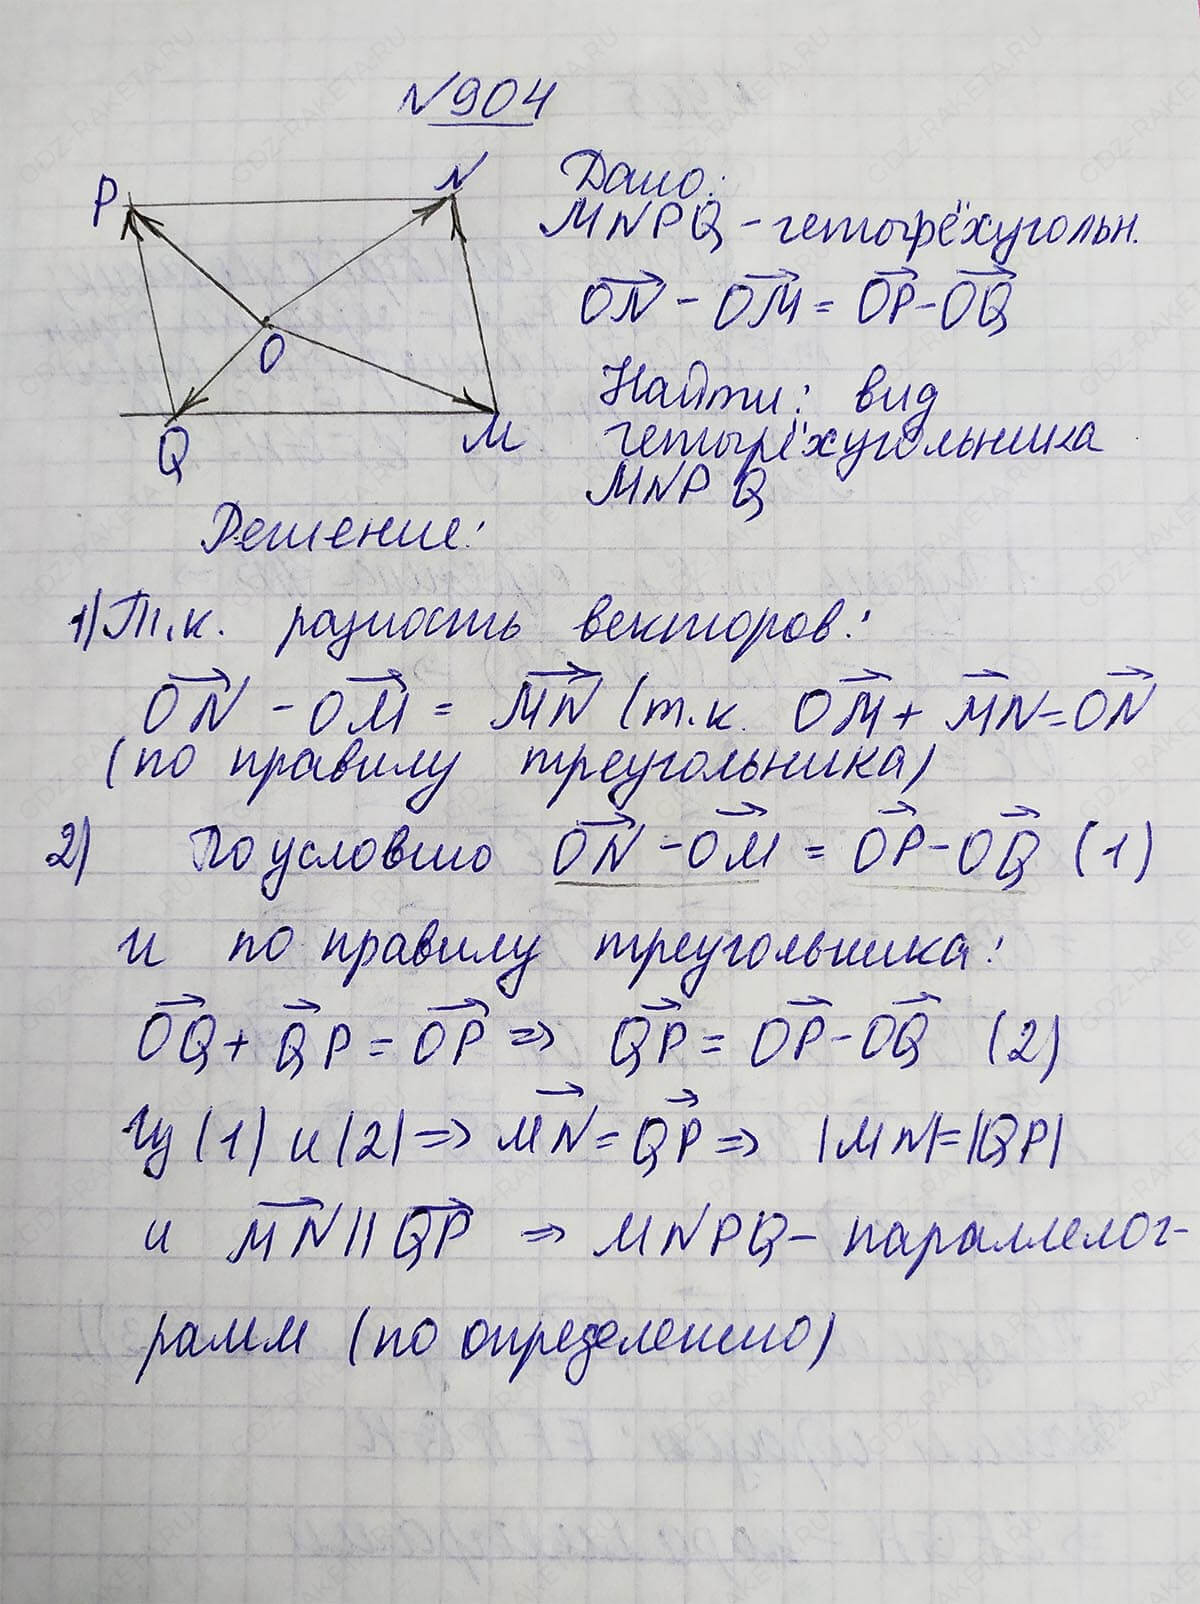 №904
P
N
O
Q
M
Дано:
MNPQ - четырёхугольн.
ON - OM = OP - OQ
Найти: вид
четырёхугольника
MNPQ
Решение:
1) Т.к. разность векторов:
ON - OM = MN (т.к. OM + MN = ON
(по правилу треугольника)
2) По условию ON - OM = OP - OQ (1)
и по правилу треугольника:
OQ + QP = OP => QP = OP - OQ (2)
Из (1) и (2) => MN = QP => |MN| = |QP|
и MN || QP => MNPQ - параллелог-
рамм (по определению)
GDZ-RAKETA.RU